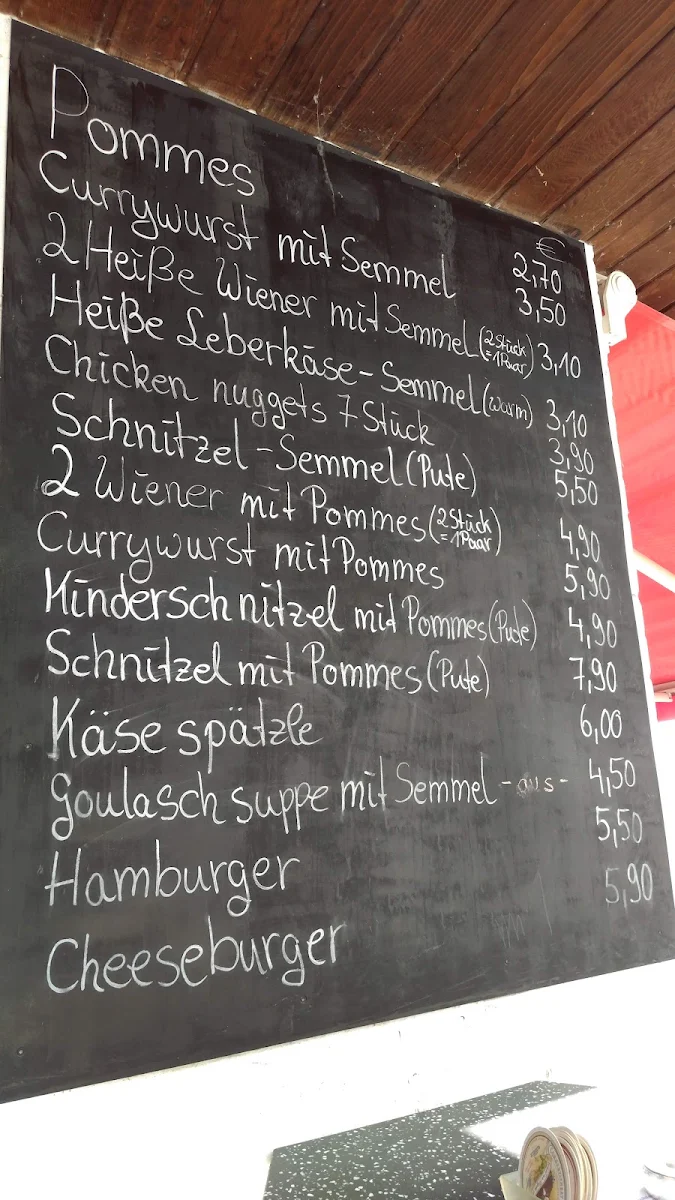 €
Pommes 2,70
Currywurst mit Semmel 3,50
2 Heiße Wiener mit Semmel (2 Stück = 1 Paar) 3,10
Heiße Leberkäse-Semmel (warm) 3,10
Chicken nuggets 7 Stück 3,90
Schnitzel-Semmel (Pute) 5,50
2 Wiener mit Pommes (2 Stück = 1 Paar) 4,90
Currywurst mit Pommes 5,90
Kinderschnitzel mit Pommes (Pute) 4,90
Schnitzel mit Pommes (Pute) 7,90
Käse spätzle 6,00
Goulasch suppe mit Semmel - aus - 4,50
Hamburger 5,50
Cheeseburger 5,90